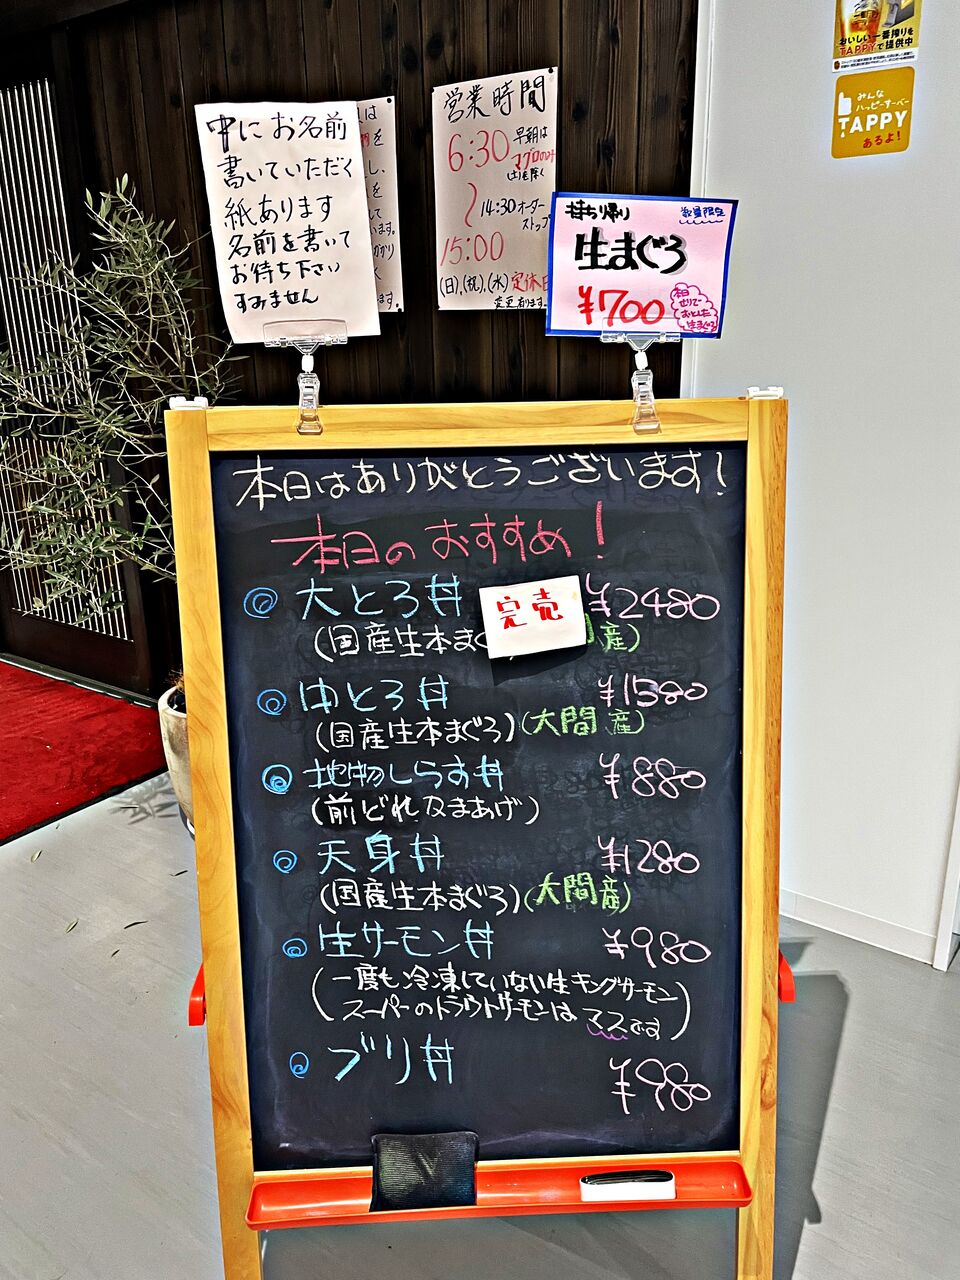 おいしい一番搾りを
TAPPYで提供中
みんな
ハッピーサーバー
TAPPY
あるよ！
中にお名前
書いていただく
紙あります
名前を書いて
お待ち下さい
すみません
営業時間
6:30 早朝は
マグロのみ
14:30オーダー
ストップ
15:00
(日),(祝),(水)定休日
変更有ります
持ち帰り 数量限定
生まぐろ
¥700
本日
せりで
おとした
生まぐろ
本日はありがとうございます！
本日のおすすめ！
大とろ丼 完売 ¥2480
(国産生本まぐ 間産)
中とろ丼 ¥1580
(国産生本まぐろ)(大間産)
地物しらす丼 ¥880
(前どれ及まあげ)
天身丼 ¥1280
(国産生本まぐろ)(大間産)
生サーモン丼 ¥980
(一度も冷凍していない生キングサーモン
スーパーのトラウトサーモンはマスです)
ブリ丼 ¥980